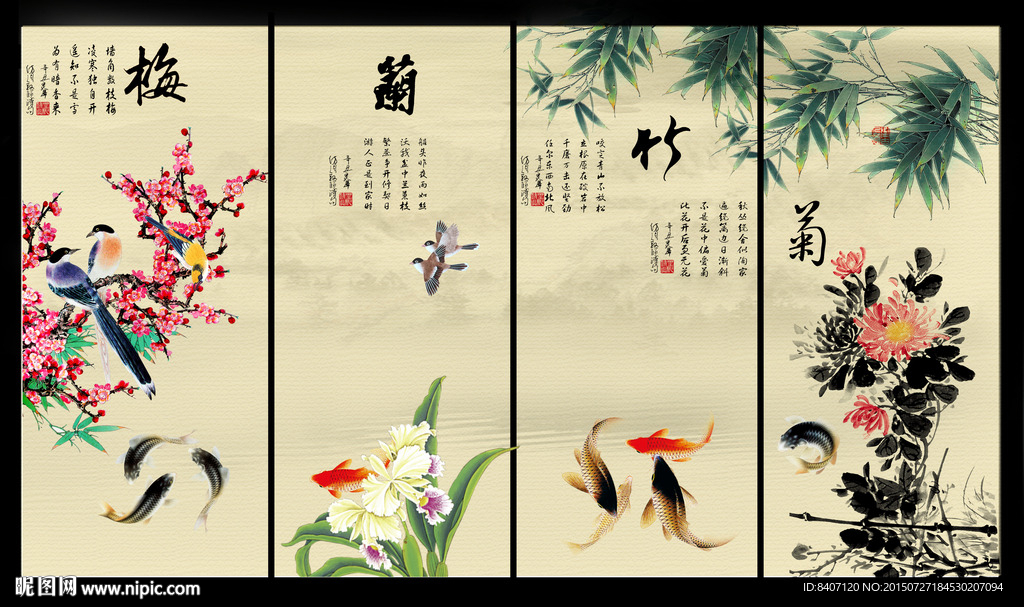 梅
墙角数枝梅
凌寒独自开
遥知不是雪
为有暗香来
蘭
头昨夜雨如丝
沃我盆中兰蕙枝
繁蕊争开修契日
游人正是到家时
竹
咬定青山不放松
立根原在破岩中
千磨万击还坚劲
任尔东西南北风
菊
秋丛绕舍似陶家
遍绕篱边日渐斜
不是花中偏爱菊
此花开后更无花
昵图网 www.nipic.com
ID:8407120 NO:20150727184530207094